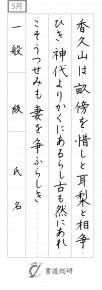 5月
香久山は畝傍を惜しと耳梨と相争
ひき神代よりかくにあるらし古も然にあれ
こそうつせみも妻を争ふらしき
一般 級 氏名
書道総研